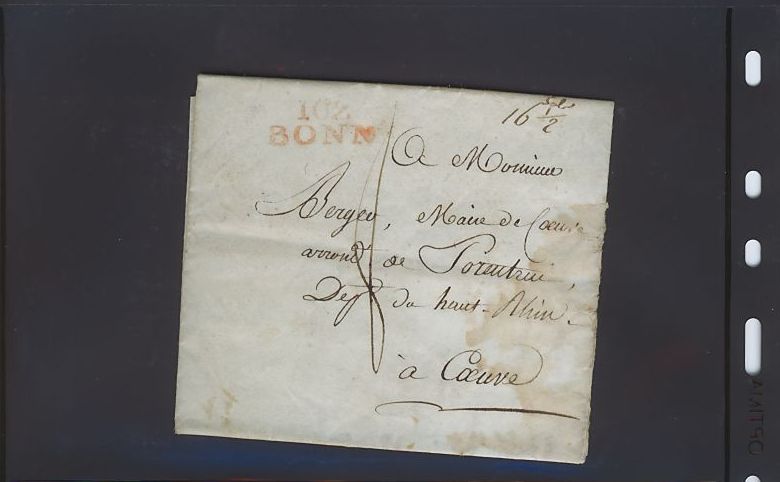 102
BONN
16 1/2
A Monsieur
Berger, Maire de Cœuve
arrond.t de Porentrui,
Dep.t du haut-Rhin.
à Cœuve
OPTIMA